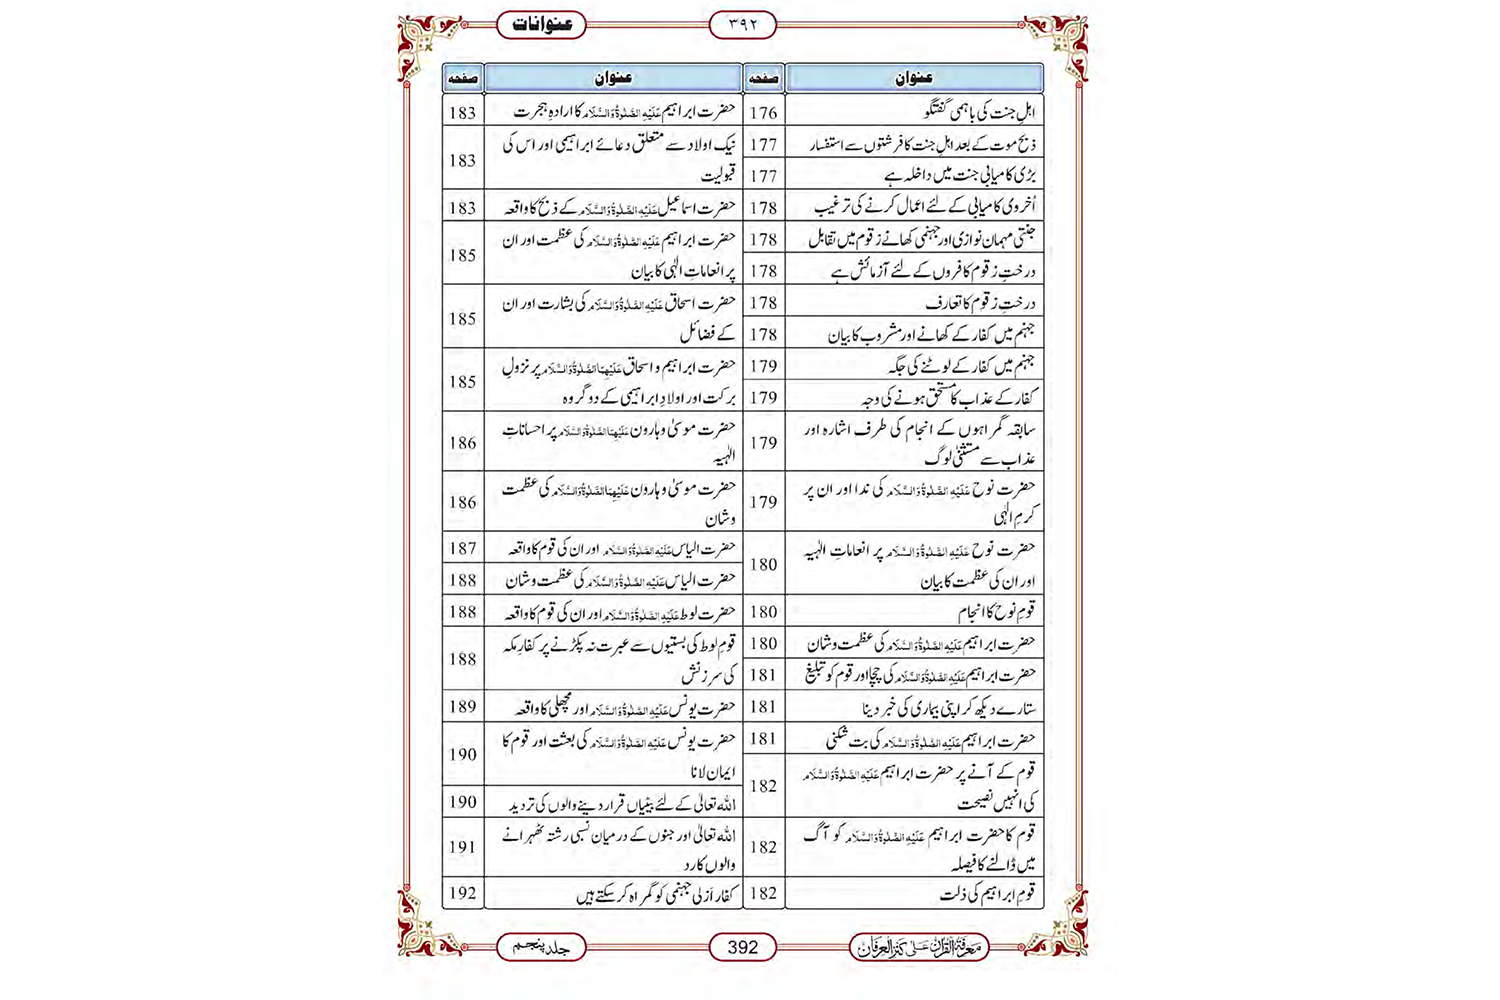 عنوانات
۳۹۲
عنوان صفحہ
اہلِ جنت کی باہمی گفتگو 176
ذبحِ موت کے بعد اہلِ جنت کا فرشتوں سے استفسار 177
بڑی کامیابی جنت میں داخلہ ہے 177
اُخروی کامیابی کے لئے اعمال کرنے کی ترغیب 178
جنتی مہمان نوازی اور جہنمی کھانے زقوم میں تقابل 178
درختِ زقوم کافروں کے لئے آزمائش ہے 178
درختِ زقوم کا تعارف 178
جہنم میں کفار کے کھانے اور مشروب کا بیان 178
جہنم میں کفار کے لوٹنے کی جگہ 179
کفار کے عذاب کا مستحق ہونے کی وجہ 179
سابقہ گمراہوں کے انجام کی طرف اشارہ اور
عذاب سے مستثنیٰ لوگ 179
حضرت نوح عَلَیْہِ الصَّلٰوۃُ وَالسَّلَام کی ندا اور ان پر
کرمِ الٰہی 179
حضرت نوح عَلَیْہِ الصَّلٰوۃُ وَالسَّلَام پر انعاماتِ الٰہیہ
اور ان کی عظمت کا بیان 180
قومِ نوح کا انجام 180
حضرت ابراہیم عَلَیْہِ الصَّلٰوۃُ وَالسَّلَام کی عظمت و شان 180
حضرت ابراہیم عَلَیْہِ الصَّلٰوۃُ وَالسَّلَام کی چچا اور قوم کو تبلیغ 181
ستارے دیکھ کر اپنی بیماری کی خبر دینا 181
حضرت ابراہیم عَلَیْہِ الصَّلٰوۃُ وَالسَّلَام کی بت شکنی 181
قوم کے آنے پر حضرت ابراہیم عَلَیْہِ الصَّلٰوۃُ وَالسَّلَام
کی انہیں نصیحت 182
قوم کا حضرت ابراہیم عَلَیْہِ الصَّلٰوۃُ وَالسَّلَام کو آگ
میں ڈالنے کا فیصلہ 182
قومِ ابراہیم کی ذلت 182
عنوان صفحہ
حضرت ابراہیم عَلَیْہِ الصَّلٰوۃُ وَالسَّلَام کا ارادۂ ہجرت 183
نیک اولاد سے متعلق دعائے ابراہیمی اور اس کی
قبولیت 183
حضرت اسماعیل عَلَیْہِ الصَّلٰوۃُ وَالسَّلَام کے ذبح کا واقعہ 183
حضرت ابراہیم عَلَیْہِ الصَّلٰوۃُ وَالسَّلَام کی عظمت اور ان
پر انعاماتِ الٰہی کا بیان 185
حضرت اسحاق عَلَیْہِ الصَّلٰوۃُ وَالسَّلَام کی بشارت اور ان
کے فضائل 185
حضرت ابراہیم و اسحاق عَلَیْہِمَا الصَّلٰوۃُ وَالسَّلَام پر نزولِ
برکت اور اولادِ ابراہیمی کے دو گروہ 185
حضرت موسیٰ و ہارون عَلَیْہِمَا الصَّلٰوۃُ وَالسَّلَام پر احساناتِ
الٰہیہ 186
حضرت موسیٰ و ہارون عَلَیْہِمَا الصَّلٰوۃُ وَالسَّلَام کی عظمت
و شان 186
حضرت الیاس عَلَیْہِ الصَّلٰوۃُ وَالسَّلَام اور ان کی قوم کا واقعہ 187
حضرت الیاس عَلَیْہِ الصَّلٰوۃُ وَالسَّلَام کی عظمت و شان 188
حضرت لوط عَلَیْہِ الصَّلٰوۃُ وَالسَّلَام اور ان کی قوم کا واقعہ 188
قومِ لوط کی بستیوں سے عبرت نہ پکڑنے پر کفارِ مکہ
کی سرزنش 188
حضرت یونس عَلَیْہِ الصَّلٰوۃُ وَالسَّلَام اور مچھلی کا واقعہ 189
حضرت یونس عَلَیْہِ الصَّلٰوۃُ وَالسَّلَام کی بعثت اور قوم کا
ایمان لانا 190
اللہ تعالیٰ کے لئے بیٹیاں قرار دینے والوں کی تردید 190
اللہ تعالیٰ اور جنوں کے درمیان نسبی رشتہ ٹھہرانے
والوں کا رد 191
کفار اَزلی جہنمی کو گمراہ کر سکتے ہیں 192
معرفۃ القرآن علی کنز العرفان
392
جلد پنجم